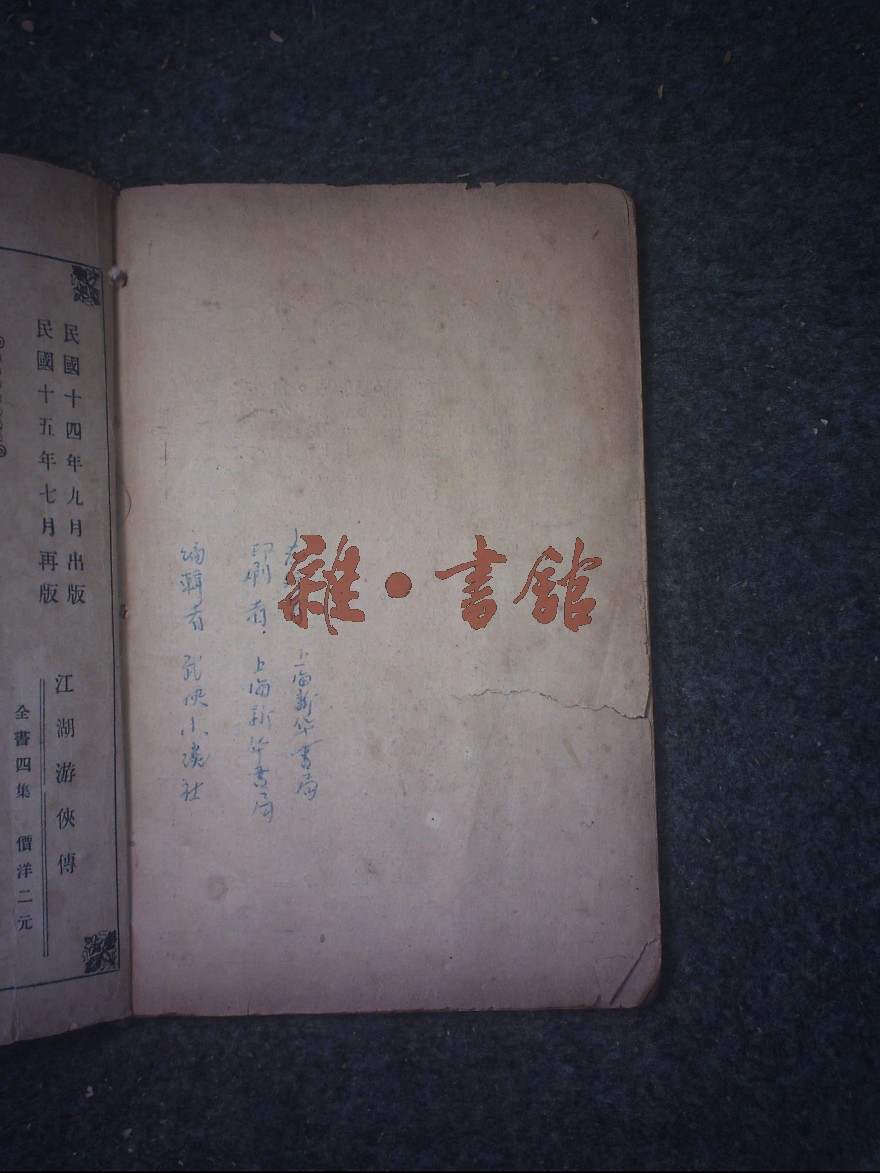 民國十四年九月出版
民國十五年七月再版
江湖游俠傳
全書四集 價洋二元
上海新华書局
印刷者．上海新华書局
编輯者 武俠小説社
雜·書館